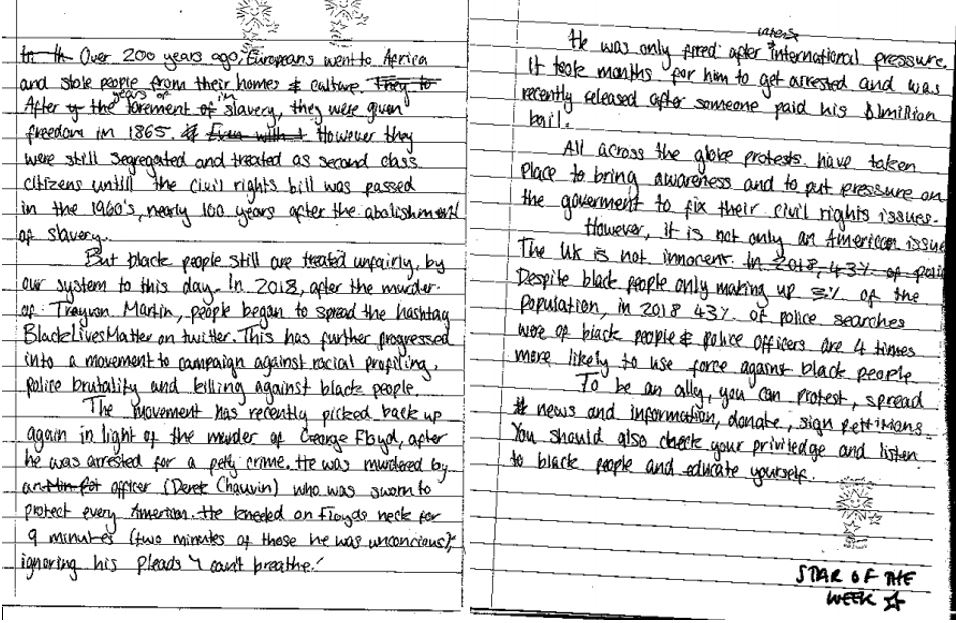 Over 200 years ago, Europeans went to Africa
and stole people from their homes & culture. They to
After the years of torement in slavery, they were given
freedom in 1865. Even with t. However they
were still segregated and treated as second class
citizens untill the civil rights bill was passed
in the 1960's, nearly 100 years after the abolishment
of slavery.
But black people still are treated unfairly, by
our system to this day. In 2018, after the murder
of Trayvon Martin, people began to spread the hashtag
BlackLivesMatter on twitter. This has further progressed
into a movement to campaign against racial profiling,
police brutality and killing against black people.
The movement has recently picked back up
again in light of the murder of George Floyd, after
he was arrested for a pety crime. He was murdered by
an officer (Derek Chauvin) who was sworn to
protect every American. He kneeled on Floyds neck for
9 minutes (two minutes of those he was unconcious),
ignoring his pleads 'I can't breathe.'
He was only fired after international pressure.
It took months for him to get arrested and was
recently released after someone paid his $1million
bail.
All across the globe protests have taken
place to bring awareness and to put pressure on
the goverment to fix their civil rights issues.
However, it is not only an American issue
The UK is not innocent. In 2018, 43% of polic
Despite black people only making up 3% of the
population, in 2018 43% of police searches
were of black people & police officers are 4 times
more likely to use force against black people
To be an ally, you can protest, spread
news and information, donate, sign pettitions.
You should also check your priviledge and listen
to black people and educate yourself.
STAR OF THE
WEEK ☆